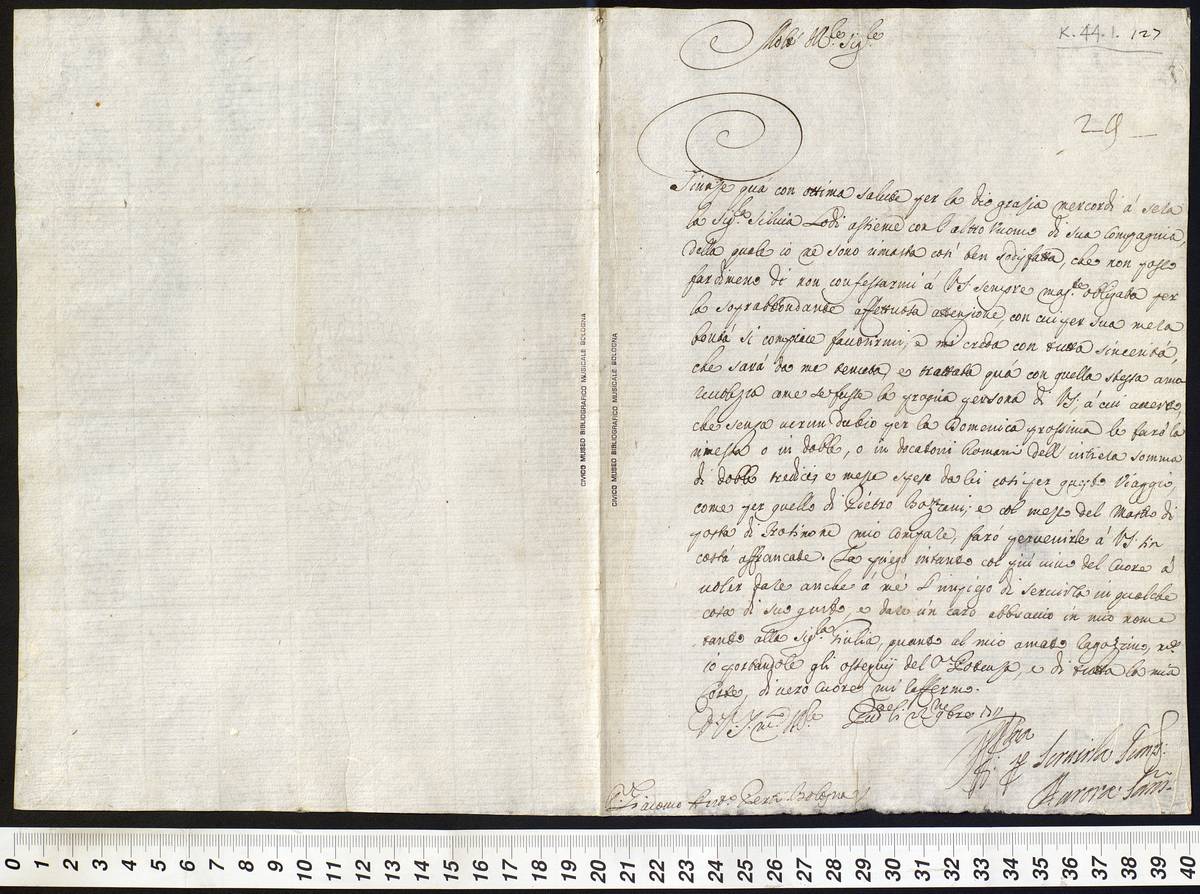 K. 44. I. 127
Molt' Ill.re Sig.re
Giunse quà con ottima salute per la dio grasia mercordì à sera
la Sig.ra Silvia Lodi assieme con l'altro Uomo di sua Compagnia,
della quale io ne sono rimasta così ben sodisfatta, che non posso
far dimeno di non confessarmi à VS sempre mag.te obligata per
la soprabbondante affettuosa attenzione, con cui per sua mera
bontà si compiace favorirmi, e mi creda con tutta sincerità,
che sarà da me tenuta, e trattata quà con quella stessa amo
revolezza come se fusse la propria persona di VS, à cui
che senza verun dubio per la Domenica prossima le farò la
rimessa o in doble, o in ducatoni Romani dell'intiera somma
di doble tredici, e mezza spese da lei così per questo Viaggio,
come per quello di Pietro e col mezzo del Mastro di
posta di mio Compare, farò pervenirle à VS fin
costà affrancate. La priego intanto col più vivo del Cuore à
voler dare anche à mè l'impiego di servirla in qualche
cosa di suo gusto, e dare un caro abbraccio in mio nome
tanto alla Sig.ra Giulia, quanto al mio amato ragazzino, ed
io portandole gli ossequij del e di tutta la mia
Corte, di vero Cuore mi raffermo.
Di V.S. M.to Ill.re li 22 9bre 1711
Aff.ma
P. Servirla Semp.
Aurora San.
S.r Giacomo Ant.o Perti Bologna
CIVICO MUSEO BIBLIOGRAFICO MUSICALE BOLOGNA
CIVICO MUSEO BIBLIOGRAFICO MUSICALE BOLOGNA
0 1 2 3 4 5 6 7 8 9 10 11 12 13 14 15 16 17 18 19 20 21 22 23 24 25 26 27 28 29 30 31 32 33 34 35 36 37 38 39 40